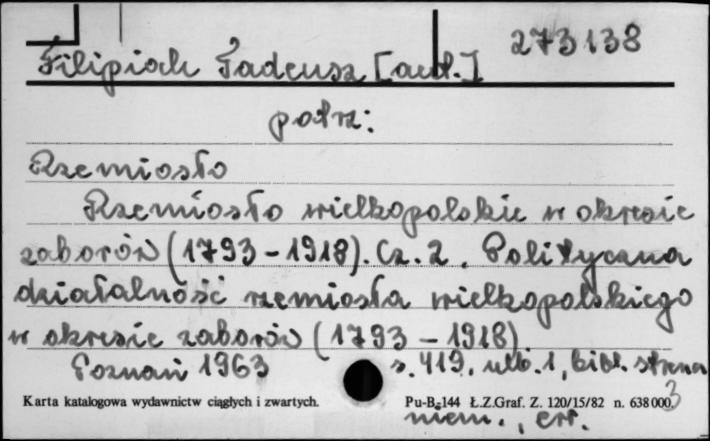 273138
Filipiak Tadeusz [aut.]
patrz:
Rzemiosło
Rzemiosło wielkopolskie w okresie
zaborów (1793-1918). Cz. 2. Polityczna
działalność rzemiosła wielkopolskiego
w okresie zaborów (1793 - 1918)
Poznań 1963 s. 419, nlb. 1, bibl. streszcz
Karta katalogowa wydawnictw ciągłych i zwartych. Pu-B-144 Ł.Z.Graf. Z. 120/15/82 n. 638 000
niem., err.